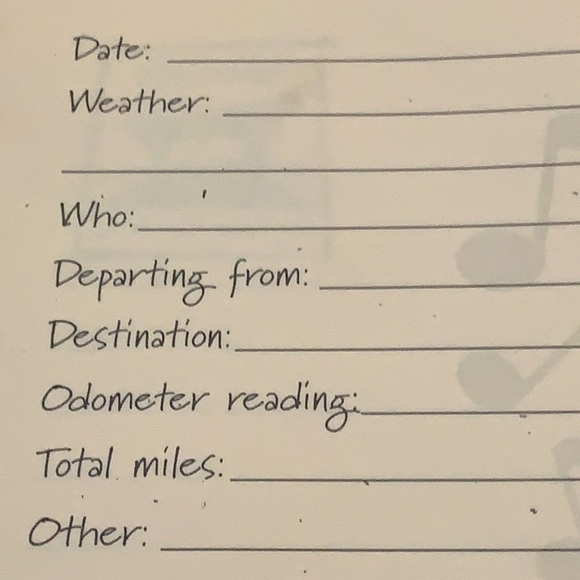 Date:
Weather:
Who:
Departing from:
Destination:
Odometer reading:
Total miles:
Other: